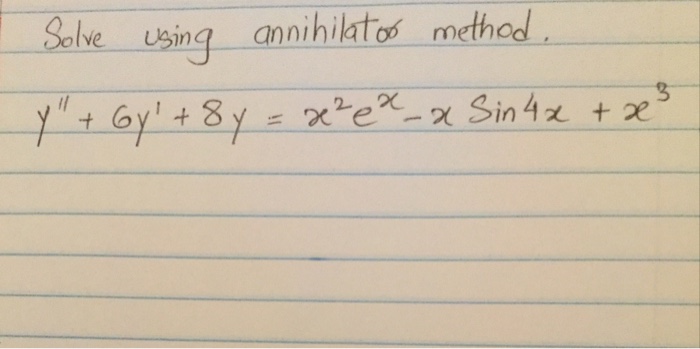 Solve using annihilator method.
y'' + 6y' + 8y = x²eˣ - x Sin4x + x³